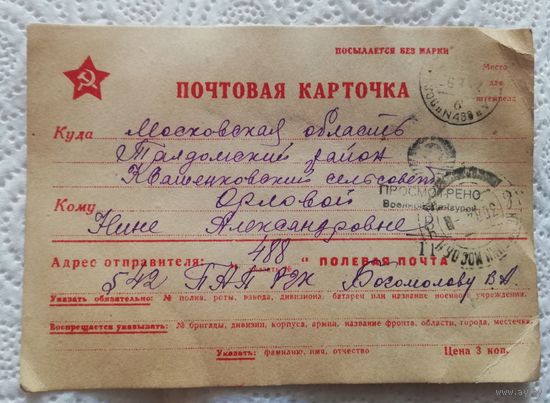 ПОСЫЛАЕТСЯ БЕЗ МАРКИ
Место
для
штемпеля
ПОЧТОВАЯ КАРТОЧКА
Куда Московская область
Талдомский район
Квашенковский сельсовет
ПРОСМОТРЕНО
Военной Цензурой
Кому Орловой
Нине Александровне
Адрес отправителя: 488 "ПОЛЕВАЯ ПОЧТА
542 ПАП РГК Богомолову В А
Указать обязательно: № полка, роты, взвода, дивизиона, батареи или название военного учреждения.
Воспрещается указывать: № бригады, дивизии, корпуса, армии, название фронта, области, города, местечка
Указать: фамилию, имя, отчество
Цена 3 коп.